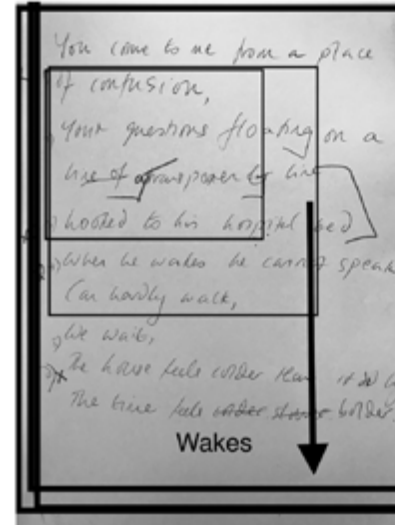 You come to me from a place
of confusion,
Your questions floating on a
line of transparent line
hooked to his hospital bed
When he wakes he cannot speak
Can hardly walk,
We wait,
The house feels colder than it did
The time feels colder bolder
Wakes